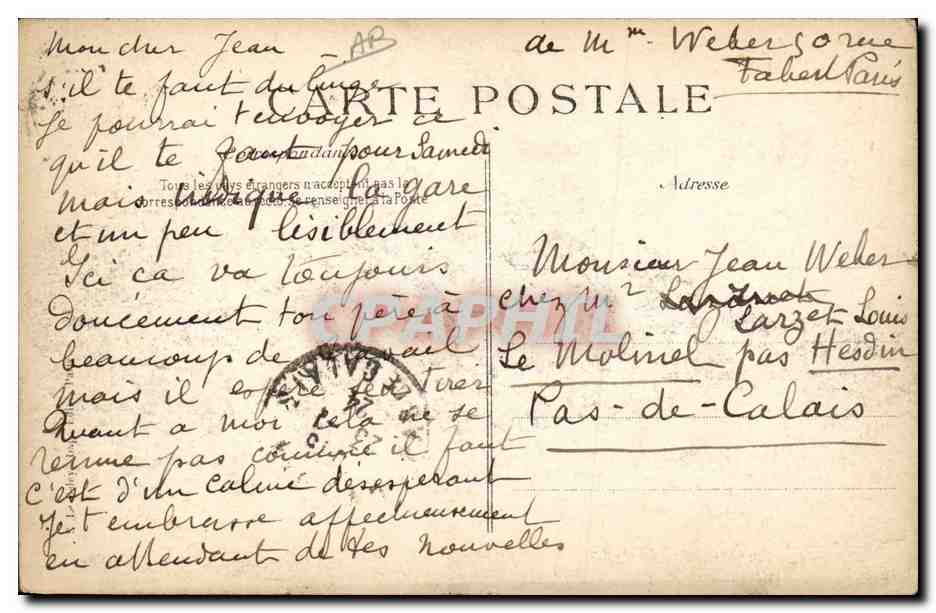 Mon cher Jean
s'il te faut du linge
Je pourrai t'envoyer ce
qu'il te faut pour Samedi
mais indique la gare
et un peu lisiblement
Ici ça va toujours
doucement ton père à
beaucoup de travail
mais il espère s'en tirer
Quant a moi cela ne se
remue pas comme il faut
c'est d'un calme désesperant
Je t'embrasse affectueusement
en attendant de tes nouvelles
AB
de Mme Weber 50 rue
Fabert Paris
CARTE POSTALE
Correspondance
Tous les pays étrangers n'acceptent pas la
correspondance au recto, se renseigner à la Poste
Adresse
Monsieur Jean Weber
chez Mr
Larzet Louis
Le Molinel pas Hesdin
Pas-de-Calais
CALAIS
CPAPHIL